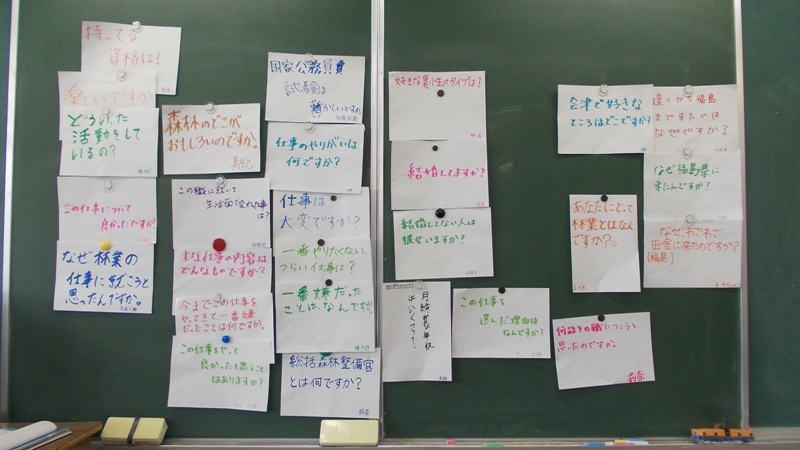 持ってる
資格は？
楽しいですか
どういった
活動をして
いるの？
この仕事について
良かったですか？
なぜ林業の
仕事に就こうと
思ったんですか。
森林のどこが
おもしろいのですか。
この職に就いて
生活面で変わった事
は？
主な仕事の内容は
どんなものですか？
今までこの仕事を
やってきて一番嫌
だったことは何ですか。
この仕事をやって
良かったと思うこと
はありますか？
国家公務員
試験は
難かしいですか
仕事のやりがいは
何ですか？
仕事は
大変ですか？
一番やりたくない、
つらい仕事は？
一番嫌だった
ことは、なんですか。
総括森林整備官
とは何ですか？
好きな異性のタイプは？
結婚してますか？
結婚してない人は
彼女いますか？
月給が年収
はいくら？
この仕事を
選んだ理由は
なんですか？
会津で好きな
ところはどこですか？
遠くから福島
まで来たのは
なぜですか？
なぜ福島県に
来たんですか？
なぜ、わざわざ
田舎に来たのですか？
(福島)
あなたにとって
林業とはなん
ですか？
何故その職につこうと
思ったのですか。
莉奈